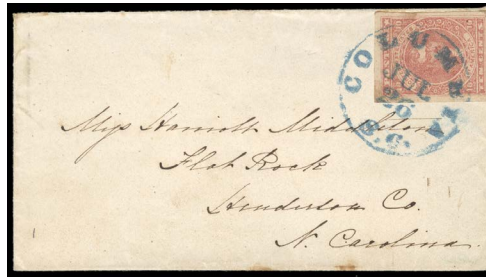 COLUMBIA
JUL
26
S.C.
Miss Harriott Middleton
Flat Rock
Henderson Co.
N. Carolina